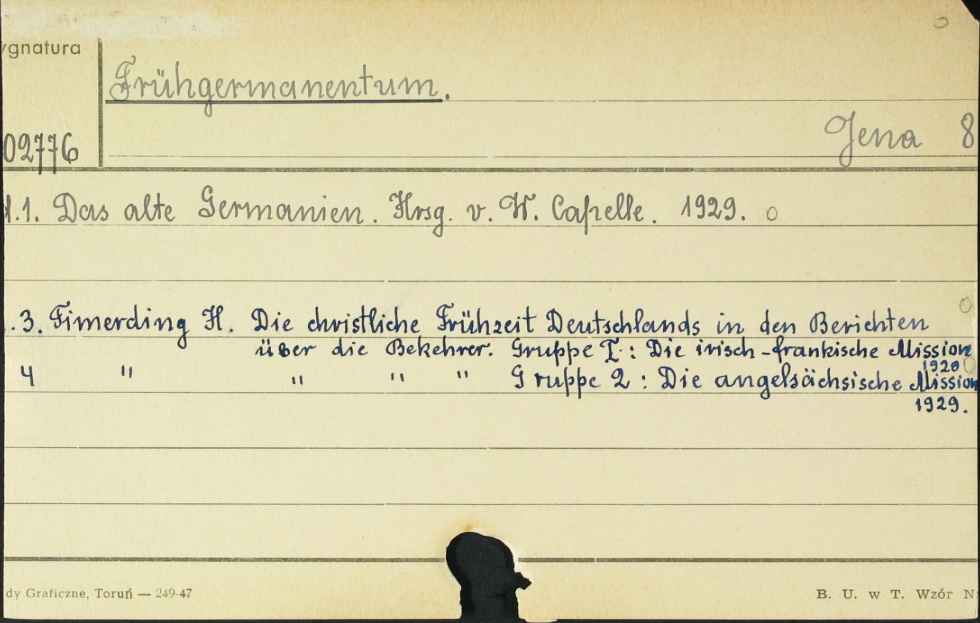 ygnatura
Frühgermanentum.
02776
Jena 8
d.1. Das alte Germanien. Hrsg. v. W. Capelle. 1929.
.3. Timerding H. Die christliche Frühzeit Deutschlands in den Berichten
über die Bekehrer. Gruppe I.: Die irisch-frankische Mission
1929
4 " " " " Gruppe 2: Die angelsächsische Mission
1929.
dy Graficzne, Toruń — 249-47
B. U. w T. Wzór N